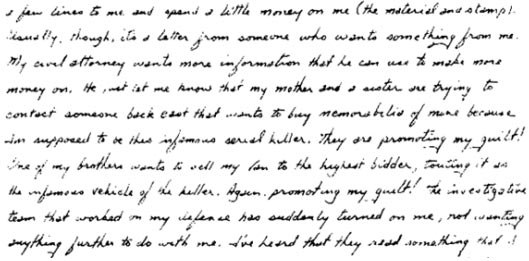 a few lines to me and spend a little money on me (the material and stamp).
Usually, though, its a letter from someone who wants something from me.
My civil attorney wants more information that he can use to make more
money on. He just let me know that my mother and a sister are trying to
contact someone back east that wants to buy memorabelia of mine because
Im supposed to be this infamous serial killer. They are promoting my guilt!
One of my brothers wants to sell my van to the highest bidder, touting it as
the infamous vehicle of the killer. Again, promoting my guilt! The investigative
team that worked on my defense has suddenly turned on me, not wanting
anything further to do with me. I've heard that they read something that I